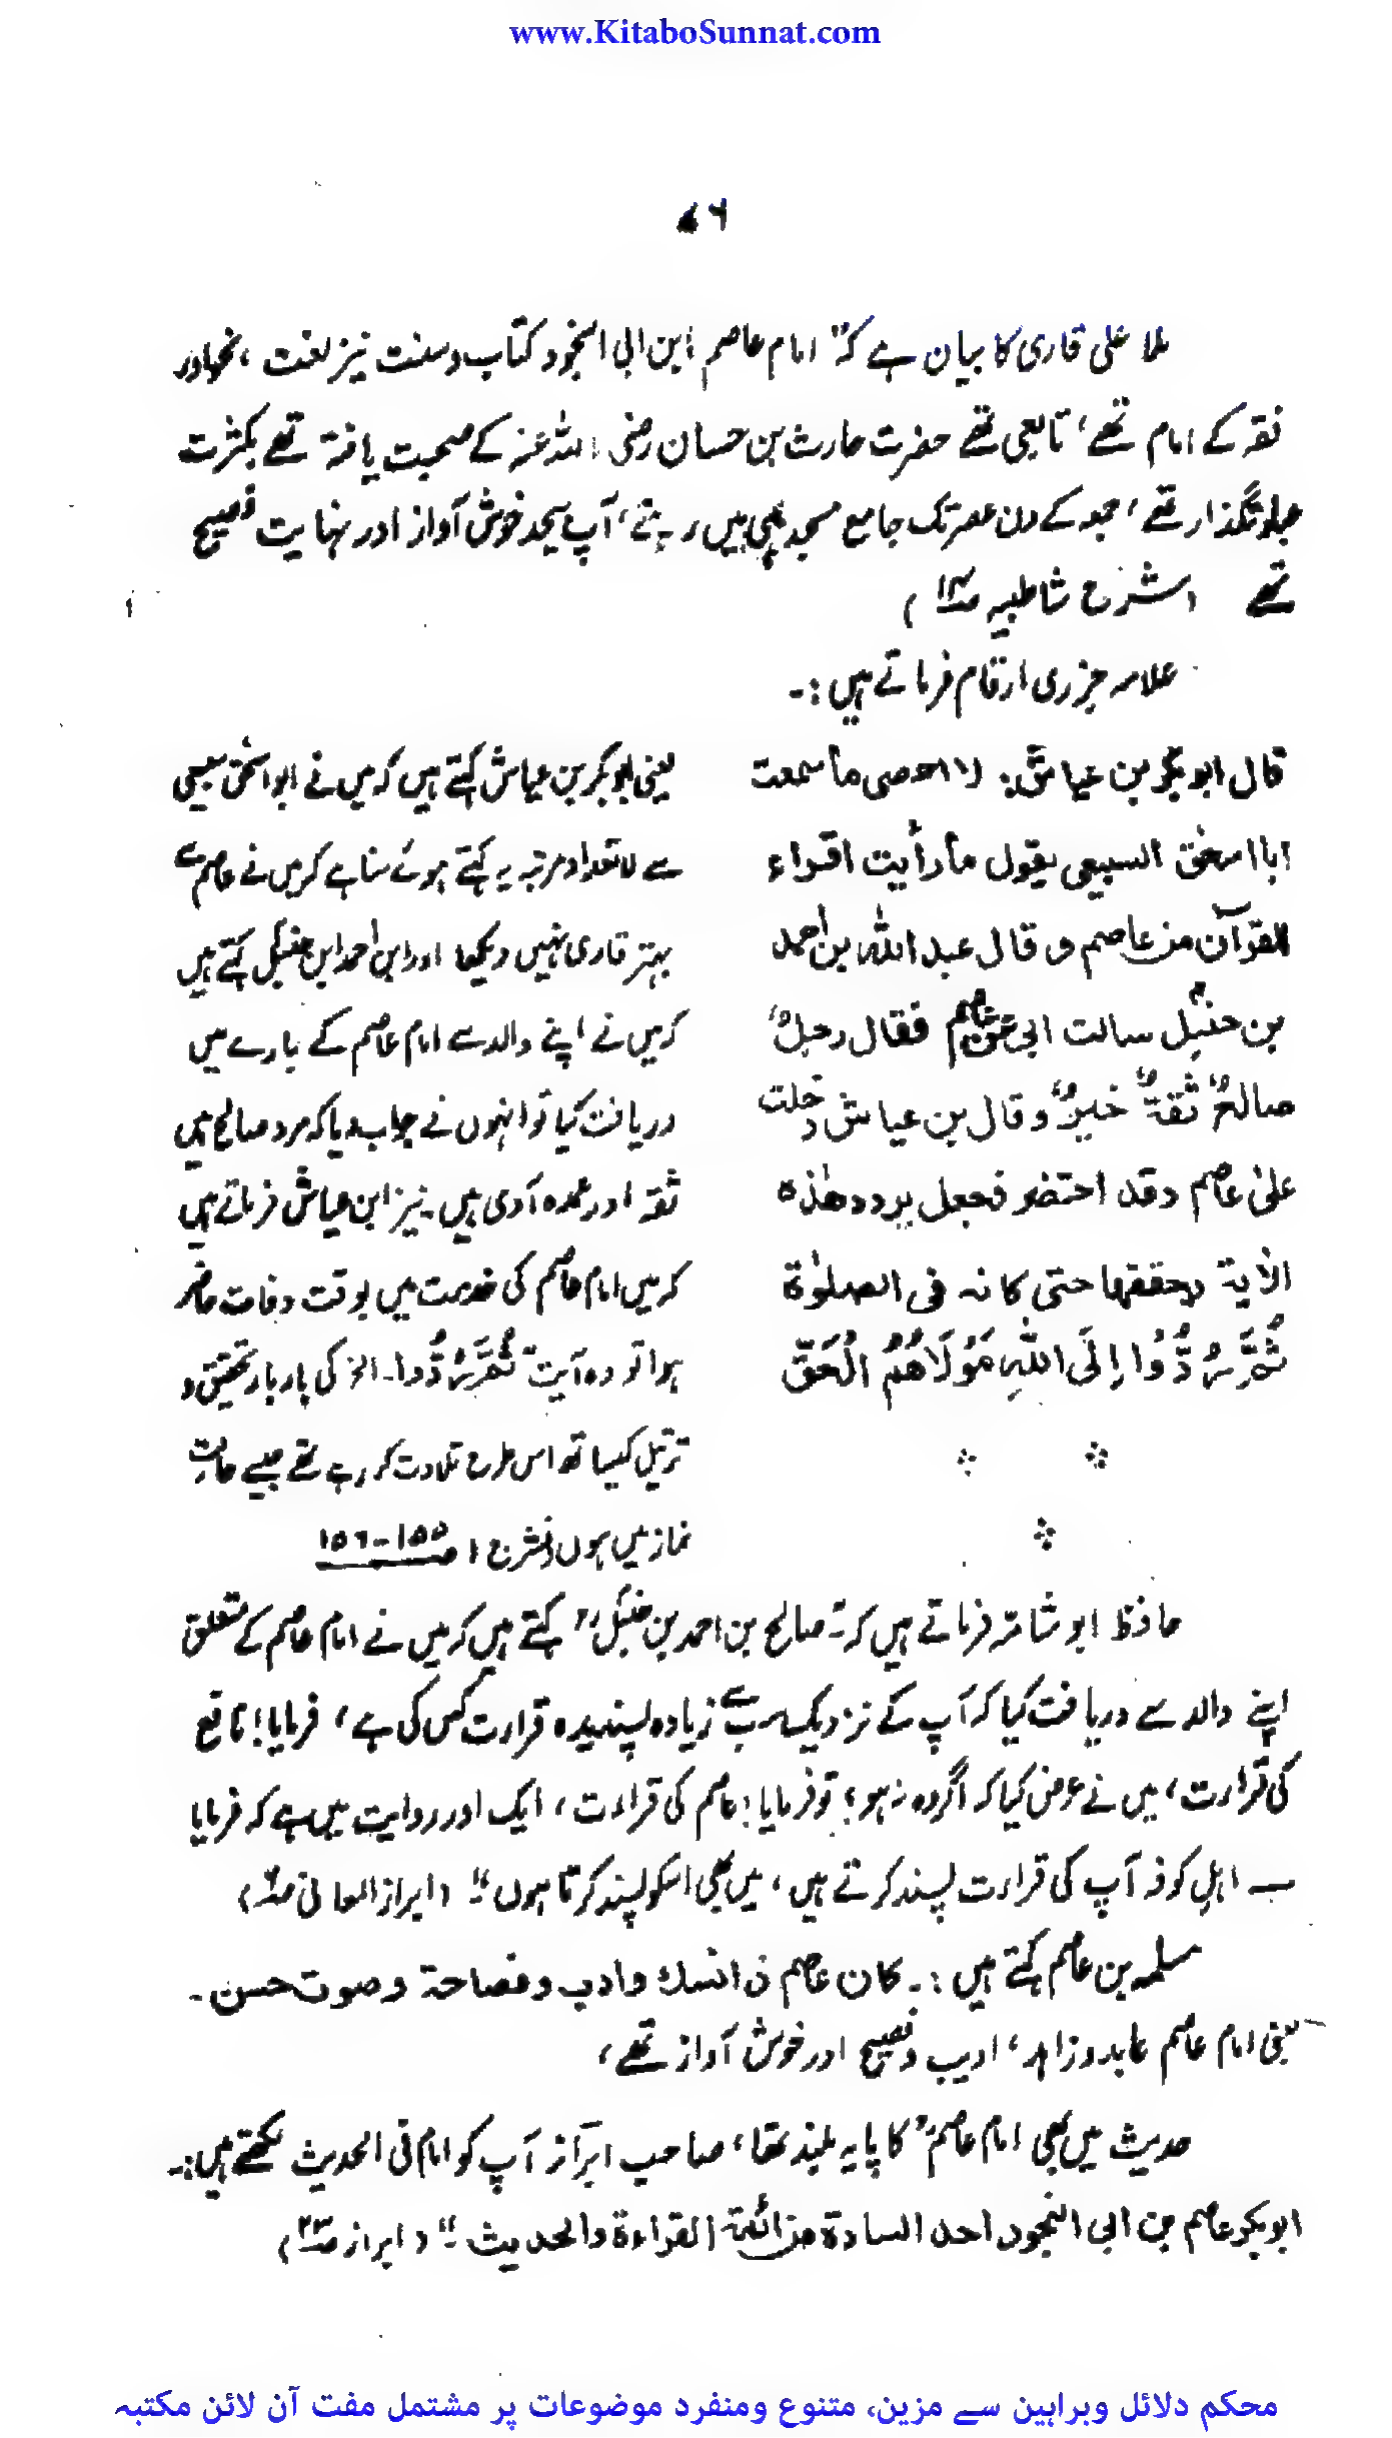 www.KitaboSunnat.com
ملا علی قاری کا بیان ہے کہ" امام عاصم ابن ابی النجود کتاب و سنت نیز لغت، نحو اور
فقہ کے امام تھے، تابعی تھے حضرت حارث بن حسان رضی اللہ عنہ کے صحبت یافتہ تھے بکثرت
گذار تھے، جمعہ کے دن عصر تک جامع مسجد ہی میں رہتے، آپ بیحد خوش آواز اور نہایت فصیح
تھے (شرح شاطبیہ صـ)
علامہ جزری ارقام فرماتے ہیں :۔
قال ابو بکر بن عیاش: لا احصی ما سمعت
ابا اسحٰق السبیعی یقول ما رأیت اقراء
للقرآن من عاصم و قال عبد اللہ بن احمد
بن حنبل سالت ابی عن عاصم فقال رجلٌ
صالحٌ ثقۃٌ خیرٌ و قال بن عیاش دخلت
علیٰ عاصم وقد احتضر فجعل یردد ھٰذہ
الاٰیۃ یحققھا حتی کانہ فی الصلوٰۃ
ثُمَّ رُدُّوا اِلَی اللّٰہِ مَوْلَاھُمُ الْحَقِّ
یعنی ابو بکر بن عیاش کہتے ہیں کہ میں نے ابو اسحٰق سبیعی
سے لا تعداد مرتبہ یہ کہتے ہوئے سنا ہے کہ میں نے عاصم سے
بہتر قاری نہیں دیکھا اور ابن احمد ابن حنبل کہتے ہیں
کہ میں نے اپنے والد سے امام عاصم کے بارے میں
دریافت کیا تو انہوں نے جواب دیا کہ مرد صالح ہیں
ثقہ اور عمدہ آدمی ہیں۔ نیز ابن عیاش فرماتے ہیں
کہ میں امام عاصم کی خدمت میں بوقت وفات حاضر
ہوا تو وہ آیت ثُمَّ رُدُّوا۔ الخ کی بار بار تحقیق و
ترتیل کیساتھ اس طرح تلاوت کر رہے تھے جیسے حالت
نماز میں ہوں (نشر ج ۱ صـ ۱۵۵-۱۵۶
حافظ ابو شامہ فرماتے ہیں کہ "صالح بن احمد بن حنبل" کہتے ہیں کہ میں نے امام عاصم کے متعلق
اپنے والد سے دریافت کیا کہ آپ کے نزدیک سب سے زیادہ پسندیدہ قرارت کس کی ہے، فرمایا! نافع
کی قرارت، میں نے عرض کیا کہ اگر وہ نہ ہو؟ تو فرمایا! عاصم کی قراءت، ایک اور روایت میں ہے کہ فرمایا
ـــ اہل کوفہ آپ کی قرارت پسند کرتے ہیں، میں بھی اسکو پسند کرتا ہوں"۔ (ابراز المعانی صـ)
مسلمہ بن عاصم کہتے ہیں :۔ کان عاصم ذا نسک و ادب و فصاحۃ و صوت حسن۔
یعنی امام عاصم عابد و زاہد، ادیب و فصیح اور خوش آواز تھے،
حدیث میں بھی امام عاصمؒ کا پایہ بلند تھا، صاحب ابراز آپ کو امام فی الحدیث لکھتے ہیں :۔
ابو بکر عاصم بن ابی النجود احد السادۃ من ائمۃ القراءۃ والحدیث"۔ (ابراز صـ)
محکم دلائل وبراہین سے مزین، متنوع ومنفرد موضوعات پر مشتمل مفت آن لائن مکتبہ